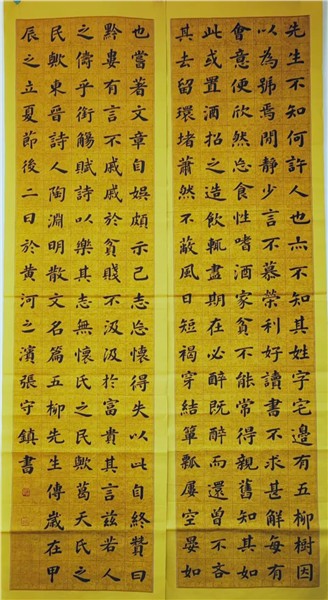 先生不知何許人也亦不知其姓字宅邊有五柳樹因
以為號焉閒靜少言不慕榮利好讀書不求甚解每有
會意便欣然忘食性嗜酒家貧不能常得親舊知其如
此或置酒招之造飲輒盡期在必醉既醉而還曾不吝
其去留環堵蕭然不蔽風日短褐穿結簞瓢屢空晏如
也嘗著文章自娛頗示己志忘懷得失以此自終贊曰
黔婁有言不戚戚於貧賤不汲汲於富貴其言茲若人
之儔乎銜觴賦詩以樂其志無懷氏之民歟葛天氏之
民歟東晉詩人陶淵明散文名篇五柳先生傳歲在甲
辰之立夏節後二日於黃河之濱張守鎮書